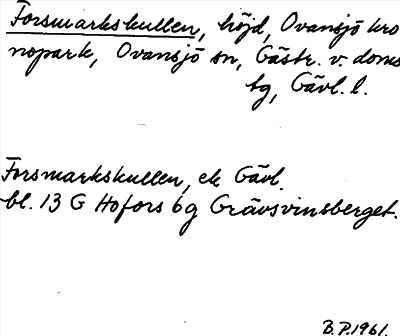 Forsmarkskullen, höjd, Ovansjö kro
nopark, Ovansjö sn, Gästr. v. doms
tg, Gävl. l.
Forsmarkskullen, ek Gävl.
bl. 13 G Hofors 6g Grävsvinsberget.
B.P. 1961.